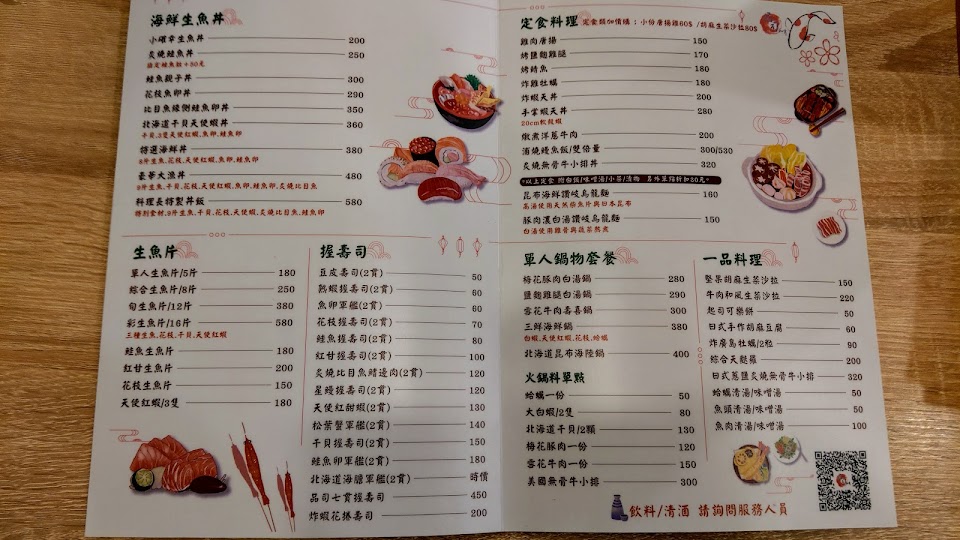 海鮮生魚丼
小確幸生魚丼 200
炙燒鮭魚丼 250
鮭魚親子丼 300
花枝魚卵丼 290
比目魚緣側鮭魚卵丼 350
北海道干貝天使蝦丼 360
干貝,3隻天使紅蝦,魚卵,鮭魚卵
特選海鮮丼 380
8片生魚,花枝,天使紅蝦,魚卵,鮭魚卵
豪華大漁丼 480
9片生魚,干貝,花枝,天使紅蝦,魚卵,鮭魚卵,炙燒比目魚
料理長特製丼飯 580
特別食材,9片生魚,干貝,花枝,天使蝦,炙燒比目魚,鮭魚卵
生魚片
單人生魚片/5片 180
綜合生魚片/8片 250
旬生魚片/12片 380
彩生魚片/16片 580
三種生魚,花枝,干貝,天使紅蝦
鮭魚生魚片 180
紅甘生魚片 200
花枝生魚片 150
天使紅蝦/3隻 180
握壽司
豆皮壽司(2貫) 50
熟蝦握壽司(2貫) 60
魚卵軍艦(2貫) 60
花枝握壽司(2貫) 70
鮭魚握壽司(2貫) 80
紅甘握壽司(2貫) 100
炙燒比目魚鰭邊肉(2貫) 120
星鰻握壽司(2貫) 120
天使紅甜蝦(2貫) 130
松葉蟹軍艦(2貫) 140
干貝握壽司(2貫) 150
鮭魚卵軍艦(2貫) 180
北海道海膽軍艦(2貫) 時價
品司七貫握壽司 450
炸蝦花捲壽司 200
定食料理 定食類加價購 ; 小份唐揚雞60$ /胡麻生菜沙拉80$
雞肉唐揚 150
烤鹽麴雞腿 170
烤鯖魚 180
炸雞牡蠣 180
炸蝦天丼 200
手掌蝦天丼 280
20cm軟殼蝦
燉煮洋蔥牛肉 200
蒲燒鰻魚飯/雙倍量 300/530
炙燒無骨牛小排丼 320
*以上定食 附白飯/味噌湯/小菜/漬物 另外單點折扣20元*
昆布海鮮讚岐烏龍麵 160
高湯使用天然柴魚片與日本昆布
豚肉濃白湯讚岐烏龍麵 150
白湯使用雞骨與蔬菜熬煮
單人鍋物套餐
梅花豚肉白湯鍋 280
鹽麴雞腿白湯鍋 290
雪花牛肉壽喜鍋 300
三鮮海鮮鍋 380
白蝦,天使紅蝦,花枝,蛤蠣
北海道昆布海陸鍋 400
火鍋料單點
蛤蠣一份 50
大白蝦/2隻 80
北海道干貝/2顆 130
梅花豚肉一份 120
雪花牛肉一份 150
美國無骨牛小排 300
一品料理
堅果胡麻生菜沙拉 150
牛肉和風生菜沙拉 220
起司可樂餅 50
日式手作胡麻豆腐 60
炸廣島牡蠣/2粒 90
綜合天麩羅 200
日式蔥鹽炙燒無骨牛小排 320
蛤蠣清湯/味噌湯 50
魚頭清湯/味噌湯 50
魚肉清湯/味噌湯 100
飲料/清酒 請詢問服務人員